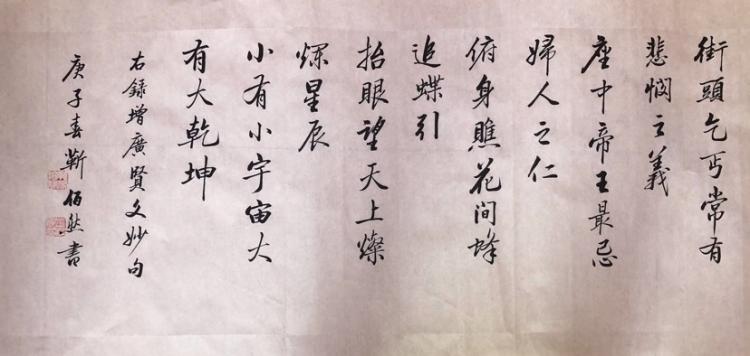 街頭乞丐常有
悲憫之義
座中帝王最忌
婦人之仁
俯身瞧花间蜂
追蝶引
抬眼望天上燦
爍星辰
小有小宇宙大
有大乾坤
右録增廣賢文妙句
庚子春靳佰然書